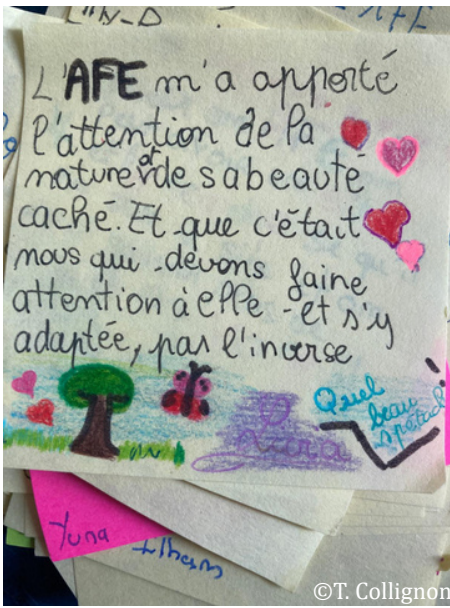 L'AFE m'a apporté
l'attention de la
nature et de sa beauté
caché. Et que c'était
nous qui devons faire
attention à elle et s'y
adaptée, pas l'inverse
Quel
beau
Yuna
©T. Collignon